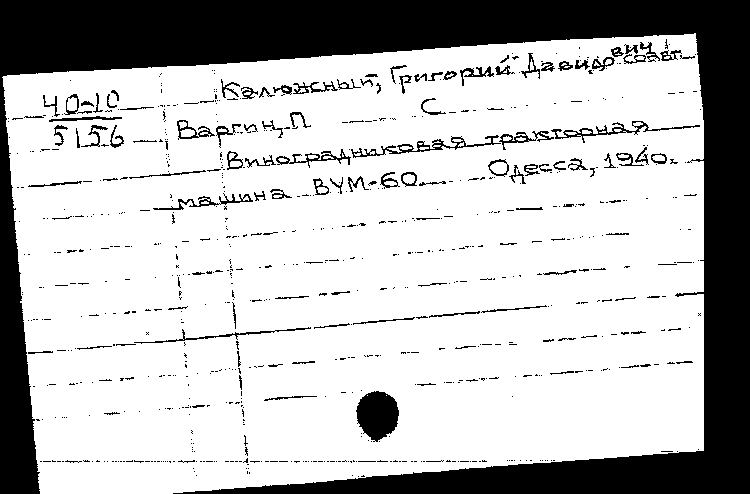 40-10
5156
Калюжный, Григорий Давидович соавт.
Варгин, П С
Виноградниковая тракторная
машина ВУМ-60 Одесса, 1940.